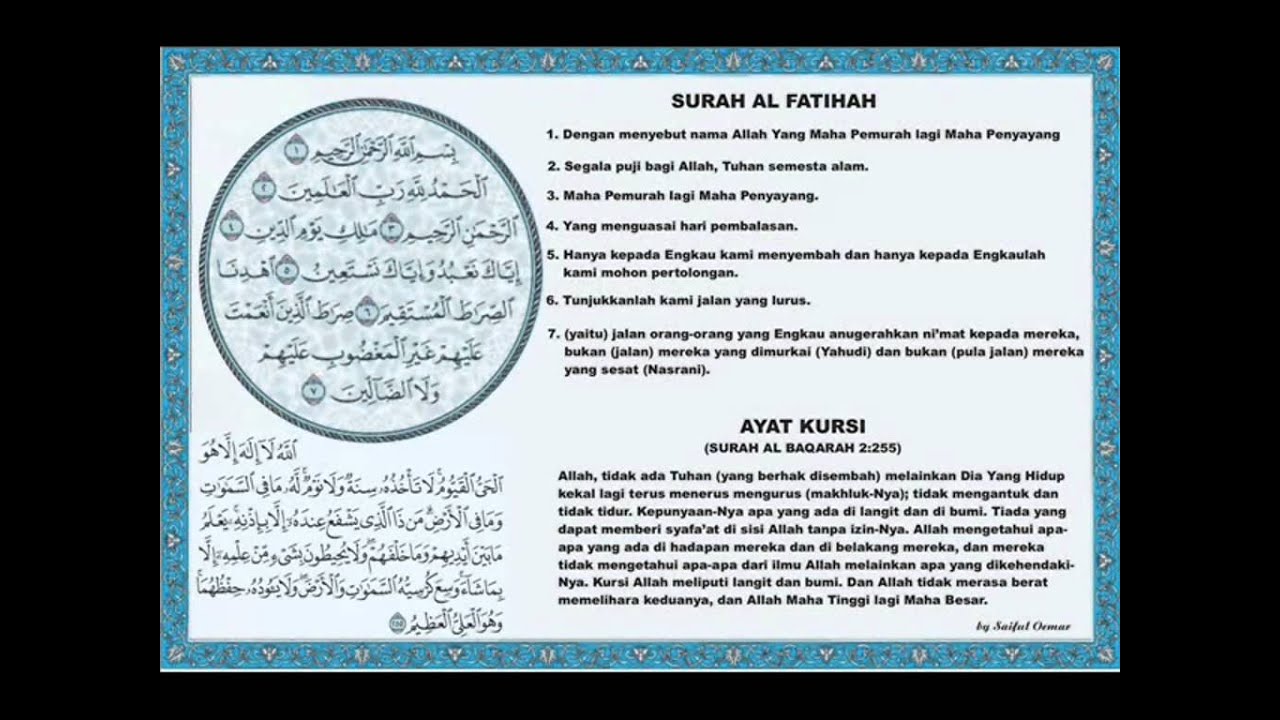 بِسْمِ ٱللَّهِ ٱلرَّحْمَٰنِ ٱلرَّحِيمِ ١
ٱلْحَمْدُ لِلَّهِ رَبِّ ٱلْعَٰلَمِينَ ٢
ٱلرَّحْمَٰنِ ٱلرَّحِيمِ ٣ مَٰلِكِ يَوْمِ ٱلدِّينِ ٤
إِيَّاكَ نَعْبُدُ وَإِيَّاكَ نَسْتَعِينُ ٥ ٱهْدِنَا
ٱلصِّرَٰطَ ٱلْمُسْتَقِيمَ ٦ صِرَٰطَ ٱلَّذِينَ أَنْعَمْتَ
عَلَيْهِمْ غَيْرِ ٱلْمَغْضُوبِ عَلَيْهِمْ
وَلَا ٱلضَّآلِّينَ ٧
ٱللَّهُ لَآ إِلَٰهَ إِلَّا هُوَ
ٱلْحَىُّ ٱلْقَيُّومُ ۚ لَا تَأْخُذُهُۥ سِنَةٌ وَلَا نَوْمٌ ۚ لَّهُۥ مَا فِى ٱلسَّمَٰوَٰتِ
وَمَا فِى ٱلْأَرْضِ ۗ مَن ذَا ٱلَّذِى يَشْفَعُ عِندَهُۥٓ إِلَّا بِإِذْنِهِۦ ۚ يَعْلَمُ
مَا بَيْنَ أَيْدِيهِمْ وَمَا خَلْفَهُمْ ۖ وَلَا يُحِيطُونَ بِشَىْءٍ مِّنْ عِلْمِهِۦٓ إِلَّا
بِمَا شَآءَ ۚ وَسِعَ كُرْسِيُّهُ ٱلسَّمَٰوَٰتِ وَٱلْأَرْضَ ۖ وَلَا يَـُٔودُهُۥ حِفْظُهُمَا ۚ
وَهُوَ ٱلْعَلِىُّ ٱلْعَظِيمُ ٢٥٥
SURAH AL FATIHAH
1. Dengan menyebut nama Allah Yang Maha Pemurah lagi Maha Penyayang
2. Segala puji bagi Allah, Tuhan semesta alam.
3. Maha Pemurah lagi Maha Penyayang.
4. Yang menguasai hari pembalasan.
5. Hanya kepada Engkau kami menyembah dan hanya kepada Engkaulah
kami mohon pertolongan.
6. Tunjukkanlah kami jalan yang lurus.
7. (yaitu) jalan orang-orang yang Engkau anugerahkan ni'mat kepada mereka,
bukan (jalan) mereka yang dimurkai (Yahudi) dan bukan (pula jalan) mereka
yang sesat (Nasrani).
AYAT KURSI
(SURAH AL BAQARAH 2:255)
Allah, tidak ada Tuhan (yang berhak disembah) melainkan Dia Yang Hidup
kekal lagi terus menerus mengurus (makhluk-Nya); tidak mengantuk dan
tidak tidur. Kepunyaan-Nya apa yang ada di langit dan di bumi. Tiada yang
dapat memberi syafa'at di sisi Allah tanpa izin-Nya. Allah mengetahui apa-
apa yang ada di hadapan mereka dan di belakang mereka, dan mereka
tidak mengetahui apa-apa dari ilmu Allah melainkan apa yang dikehendaki-
Nya. Kursi Allah meliputi langit dan bumi. Dan Allah tidak merasa berat
memelihara keduanya, dan Allah Maha Tinggi lagi Maha Besar.
by Saiful Oemar